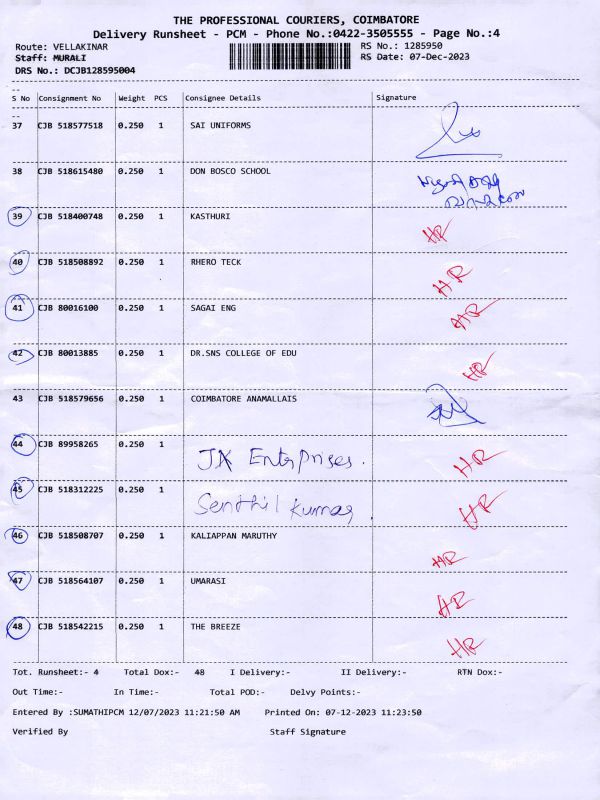 THE PROFESSIONAL COURIERS, COIMBATORE
Delivery Runsheet - PCM - Phone No.:0422-3505555 - Page No.:4
Route: VELLAKINAR RS No.: 1285950
Staff: MURALI RS Date: 07-Dec-2023
DRS No.: DCJB128595004
S No Consignment No Weight PCS Consignee Details Signature
37 CJB 518577518 0.250 1 SAI UNIFORMS
38 CJB 518615480 0.250 1 DON BOSCO SCHOOL
39 CJB 518400748 0.250 1 KASTHURI HR
40 CJB 518508892 0.250 1 RHERO TECK HR
41 CJB 80016100 0.250 1 SAGAI ENG HR
42 CJB 80013885 0.250 1 DR.SNS COLLEGE OF EDU HR
43 CJB 518579656 0.250 1 COIMBATORE ANAMALLAIS
44 CJB 89958265 0.250 1 JK Enterprises. HR
45 CJB 518312225 0.250 1 Senthil Kumar. HR
46 CJB 518508707 0.250 1 KALIAPPAN MARUTHY HR
47 CJB 518564107 0.250 1 UMARASI HR
48 CJB 518542215 0.250 1 THE BREEZE HR
Tot. Runsheet:- 4 Total Dox:- 48 I Delivery:- II Delivery:- RTN Dox:-
Out Time:- In Time:- Total POD:- Delvy Points:-
Entered By :SUMATHIPCM 12/07/2023 11:21:50 AM Printed On: 07-12-2023 11:23:50
Verified By Staff Signature